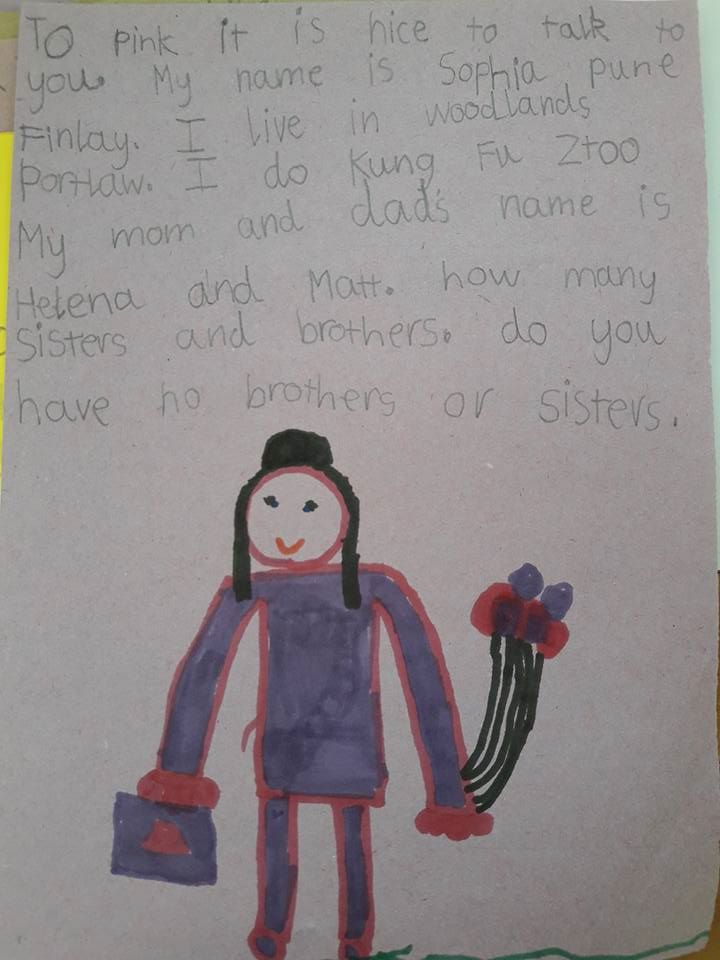 To pink it is nice to talk to
you. My name is Sophia pune
Finlay. I live in woodlands
portlaw. I do Kung Fu Ztoo
My mom and dad's name is
Helena and Matt. how many
sisters and brothers. do you
have no brothers or sisters.